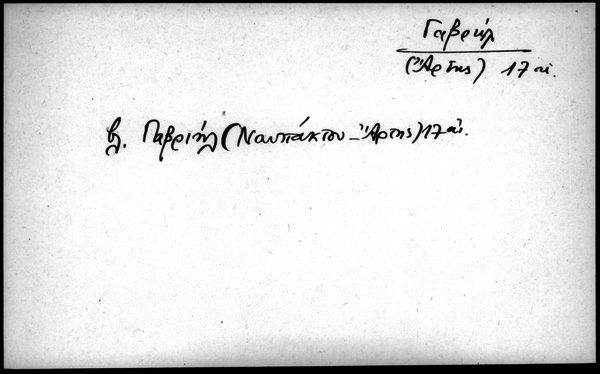 Γαβριήλ
(Ἄρτης) 17 αἰ.
βλ. Γαβριήλ (Ναυπάκτου - Ἄρτης) 17 αἰ.